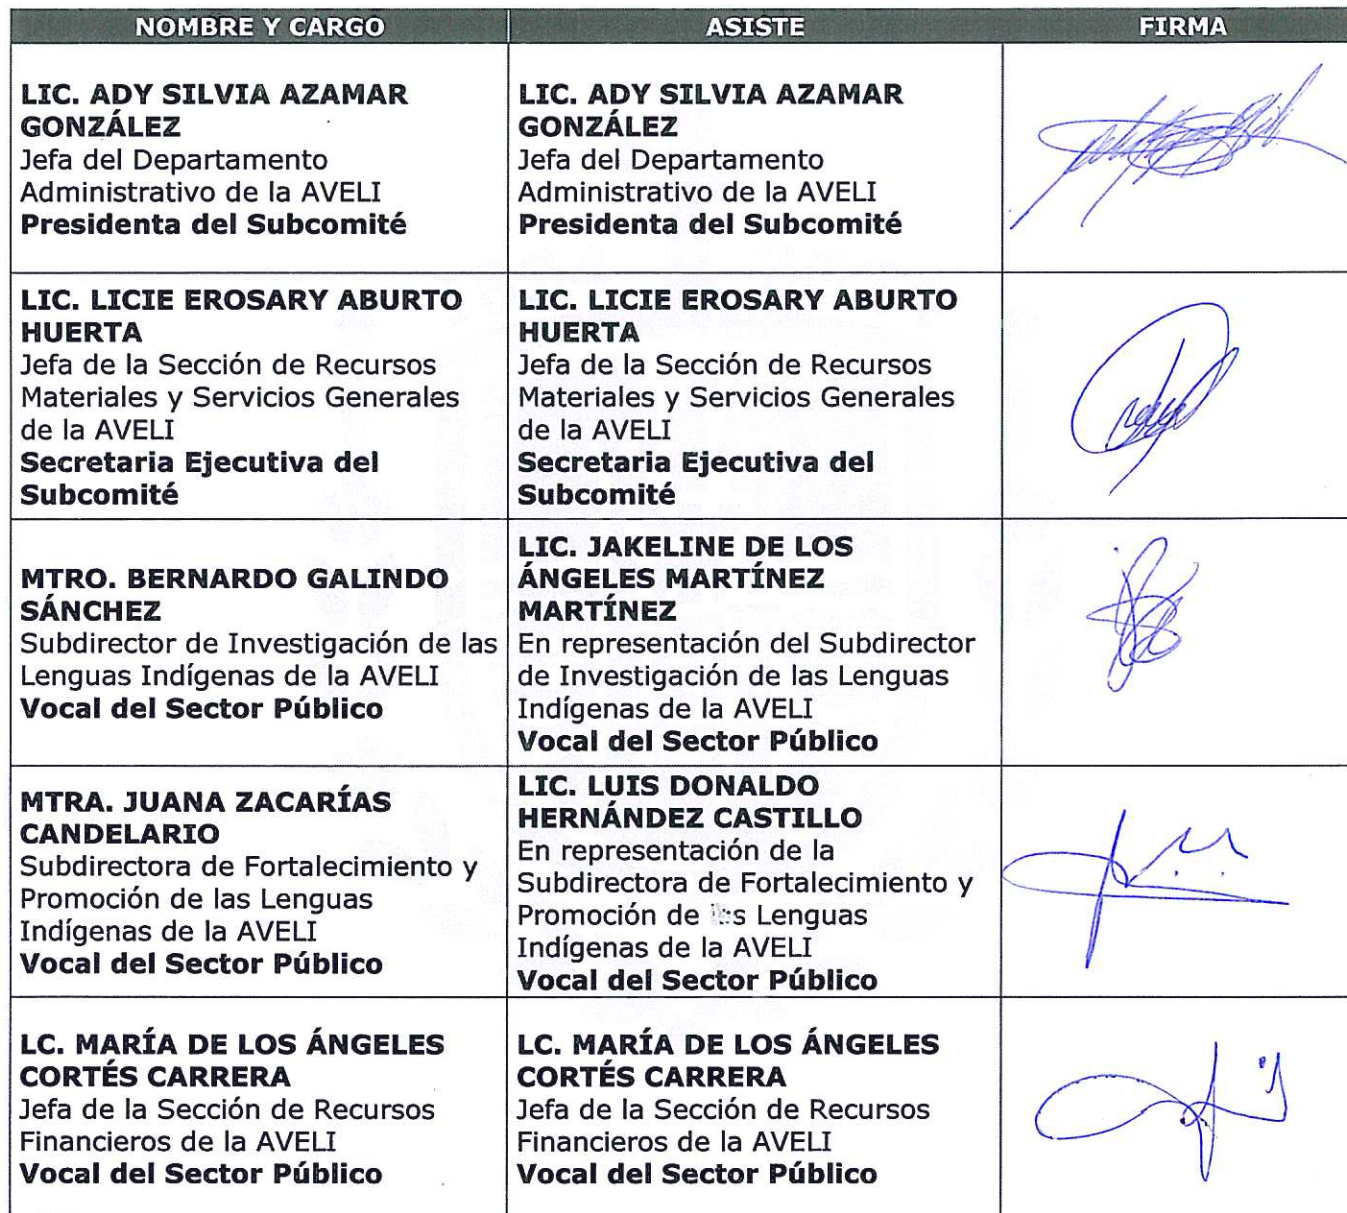 NOMBRE Y CARGO
ASISTE
FIRMA
LIC. ADY SILVIA AZAMAR
GONZÁLEZ
Jefa del Departamento
Administrativo de la AVELI
Presidenta del Subcomité
LIC. ADY SILVIA AZAMAR
GONZÁLEZ
Jefa del Departamento
Administrativo de la AVELI
Presidenta del Subcomité
LIC. LICIE EROSARY ABURTO
HUERTA
Jefa de la Sección de Recursos
Materiales y Servicios Generales
de la AVELI
Secretaria Ejecutiva del
Subcomité
LIC. LICIE EROSARY ABURTO
HUERTA
Jefa de la Sección de Recursos
Materiales y Servicios Generales
de la AVELI
Secretaria Ejecutiva del
Subcomité
MTRO. BERNARDO GALINDO
SÁNCHEZ
Subdirector de Investigación de las
Lenguas Indígenas de la AVELI
Vocal del Sector Público
LIC. JAKELINE DE LOS
ÁNGELES MARTÍNEZ
MARTÍNEZ
En representación del Subdirector
de Investigación de las Lenguas
Indígenas de la AVELI
Vocal del Sector Público
MTRA. JUANA ZACARÍAS
CANDELARIO
Subdirectora de Fortalecimiento y
Promoción de las Lenguas
Indígenas de la AVELI
Vocal del Sector Público
LIC. LUIS DONALDO
HERNÁNDEZ CASTILLO
En representación de la
Subdirectora de Fortalecimiento y
Promoción de las Lenguas
Indígenas de la AVELI
Vocal del Sector Público
LC. MARÍA DE LOS ÁNGELES
CORTÉS CARRERA
Jefa de la Sección de Recursos
Financieros de la AVELI
Vocal del Sector Público
LC. MARÍA DE LOS ÁNGELES
CORTÉS CARRERA
Jefa de la Sección de Recursos
Financieros de la AVELI
Vocal del Sector Público